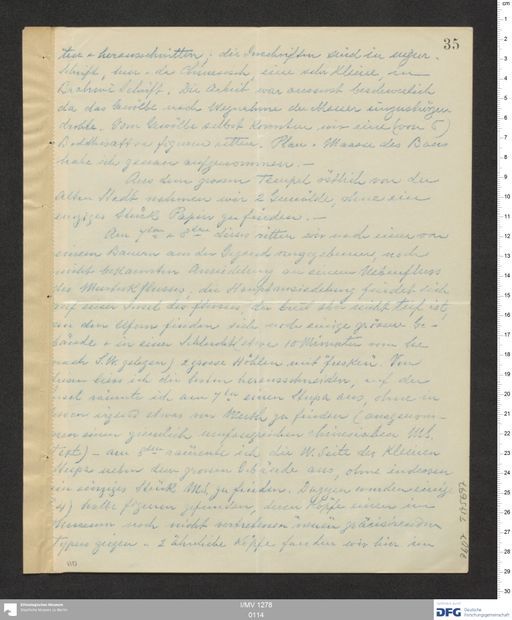 35
tur + herausschnitten, die Inschriften sind in uigur.
Schrift, nur die Chinesisch, eine sehr kleine, in
Brahmi Schrift. Die Arbeit war äusserst beschwerlich
da das Gewölbe nach Wegnahme der Mauer einzustürzen
drohte. Vom Gewölbe selbst konnten wir eine (von 5)
Boddhisattva figuren retten. Plan + Maasse des Baus
habe ich genau aufgenommen. —
Aus dem grossen Tempel östlich von der
alten Stadt nahmen wir 2 Gemälde, ohne ein
einziges Stück Papier zu finden. —
Am 7ten + 8ten dieses ritten wir nach einer von
einem Bauern aus der Gegend angegebenen, noch
nicht bekannten Ansiedelung an einem Nebenfluss
des Murtuk flusses. die Hauptansiedelung findet sich
auf einer Insel des flusses, der breit aber nicht tief ist,
an den Ufern finden sich noch einige grössere Ge-
bäude + in einer Schlucht (etwa 10 Minuten von
nach S.W. gelegen) 2 grosse Höhlen mit fresken. Von
liess ich die besten herausschneiden, auf der
Insel räumte ich am 7ten einen Stupa aus, ohne
irgend etwas von Werth zu finden (ausgenom-
men einen ziemlich umfangreichen chinesischen MS.
Text) — am 8ten räumte ich die W. Seite des kleinen
Stupa neben dem grossen Gebäude aus, ohne indessen
ein einziges Stück MS. zu finden. Dagegen wurden einige
(4) halbe figuren gefunden, deren Köpfe einen im
Museum noch nicht vertretenen
typus zeigen. — 2 ähnliche Köpfe fanden wir hier im
Ethnologisches Museum
Staatliche Museen zu Berlin
I/MV 1278
0114
DFG
Deutsche
Forschungsgemeinschaft